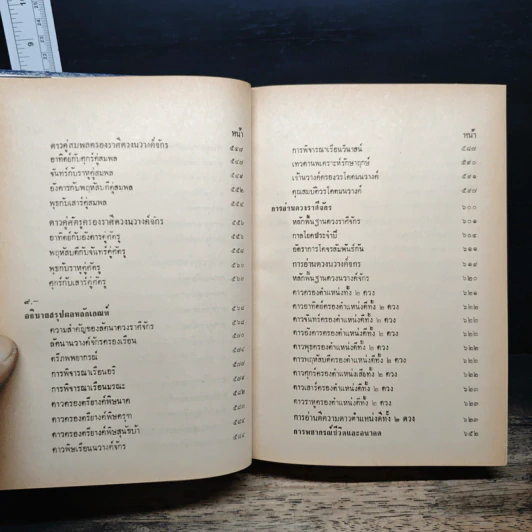 หน้า
ดาวคู่สมพลครองราศีดวงนวางค์จักร ๕๔๗
อาทิตย์กับศุกร์คู่สมพล ๕๔๘
จันทร์กับราหูคู่สมพล
อังคารกับพฤหัสบดีคู่สมพล ๕๕๒
พุธกับเสาร์คู่สมพล
ดาวคู่ศัตรูครองราศีดวงนวางค์จักร ๕๕๖
อาทิตย์กับอังคารคู่ศัตรู
พฤหัสบดีกับจันทร์คู่ศัตรู
พุธกับราหูคู่ศัตรู
ศุกร์กับเสาร์คู่ศัตรู
๙.–
อธิบายสรุปผลหลักเกณฑ์
ความสำคัญของลัคนาดวงราศีจักร
ลัคนานวางค์จักรครองเรือน
ตรีภพพยากรณ์
การพิจารณาเรือนอริ
การพิจารณาเรือนมรณะ
ดาวครองตรียางค์พิษนาค
ดาวครองตรียางค์พิษครุฑ
ดาวครองตรียางค์พิษสุนัขบ้า
ดาวพิษเรือนนวางค์จักร
หน้า
การพิจารณาเรือนวินาสน์ ๕๘๗
เทวดานพเคราะห์รักษาฤกษ์ ๕๙๐
เจ้านวางค์ครองวรโคตมนวางค์ ๕๙๕
คุณสมบัติวรโคตมนวางค์ ๕๙๗
การอ่านดวงราศีจักร ๖๐๐
หลักพื้นฐานดวงราศีจักร ๖๐๑
กาลโยคประจำปี ๖๐๘
อัตราการโคจรสัมพันธ์กัน ๖๑๑
การอ่านดวงนวางค์จักร ๖๑๔
หลักพื้นฐานดวงนวางค์จักร ๖๒๐
ดาวครองตำแหน่งทั้ง ๒ ดวง ๖๒๑
ดาวอาทิตย์ครองตำแหน่งดีทั้ง ๒ ดวง ๖๒๑
ดาวจันทร์ครองตำแหน่งดีทั้ง ๒ ดวง ๖๒๑
ดาวอังคารครองตำแหน่งดีทั้ง ๒ ดวง ๖๒๑
ดาวพุธครองตำแหน่งดีทั้ง ๒ ดวง ๖๒๒
ดาวพฤหัสบดีครองตำแหน่งดีทั้ง ๒ ดวง ๖๒๒
ดาวศุกร์ครองตำแหน่งเสียทั้ง ๒ ดวง ๖๒๒
ดาวเสาร์ครองตำแหน่งดีทั้ง ๒ ดวง ๖๒๒
ดาวราหูครองตำแหน่งดีทั้ง ๒ ดวง ๖๒๒
การอ่านตีความดาวตำแหน่งดีทั้ง ๒ ดวง ๖๒๓
การพยากรณ์ชีวิตและอนาคต ๖๕๒